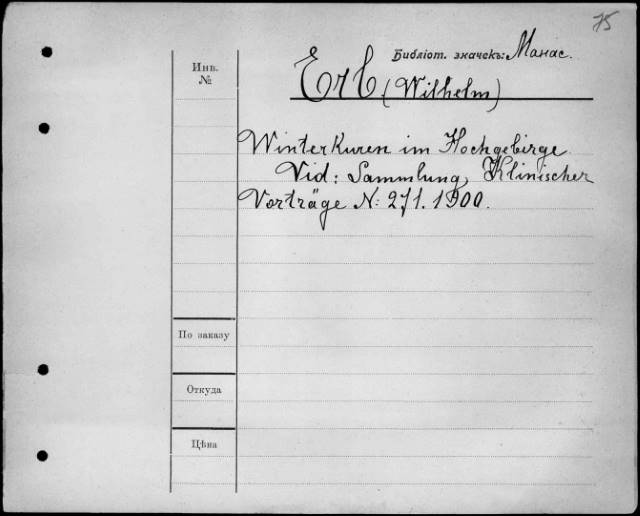 75
Библіот. значекъ: Манас.
Инв. №
Erb (Wilhelm)
Winterkuren im Hochgebirge
Vid: Sammlung, Klinischer
Vorträge N: 271. 1900.
По заказу
Откуда
Цѣна